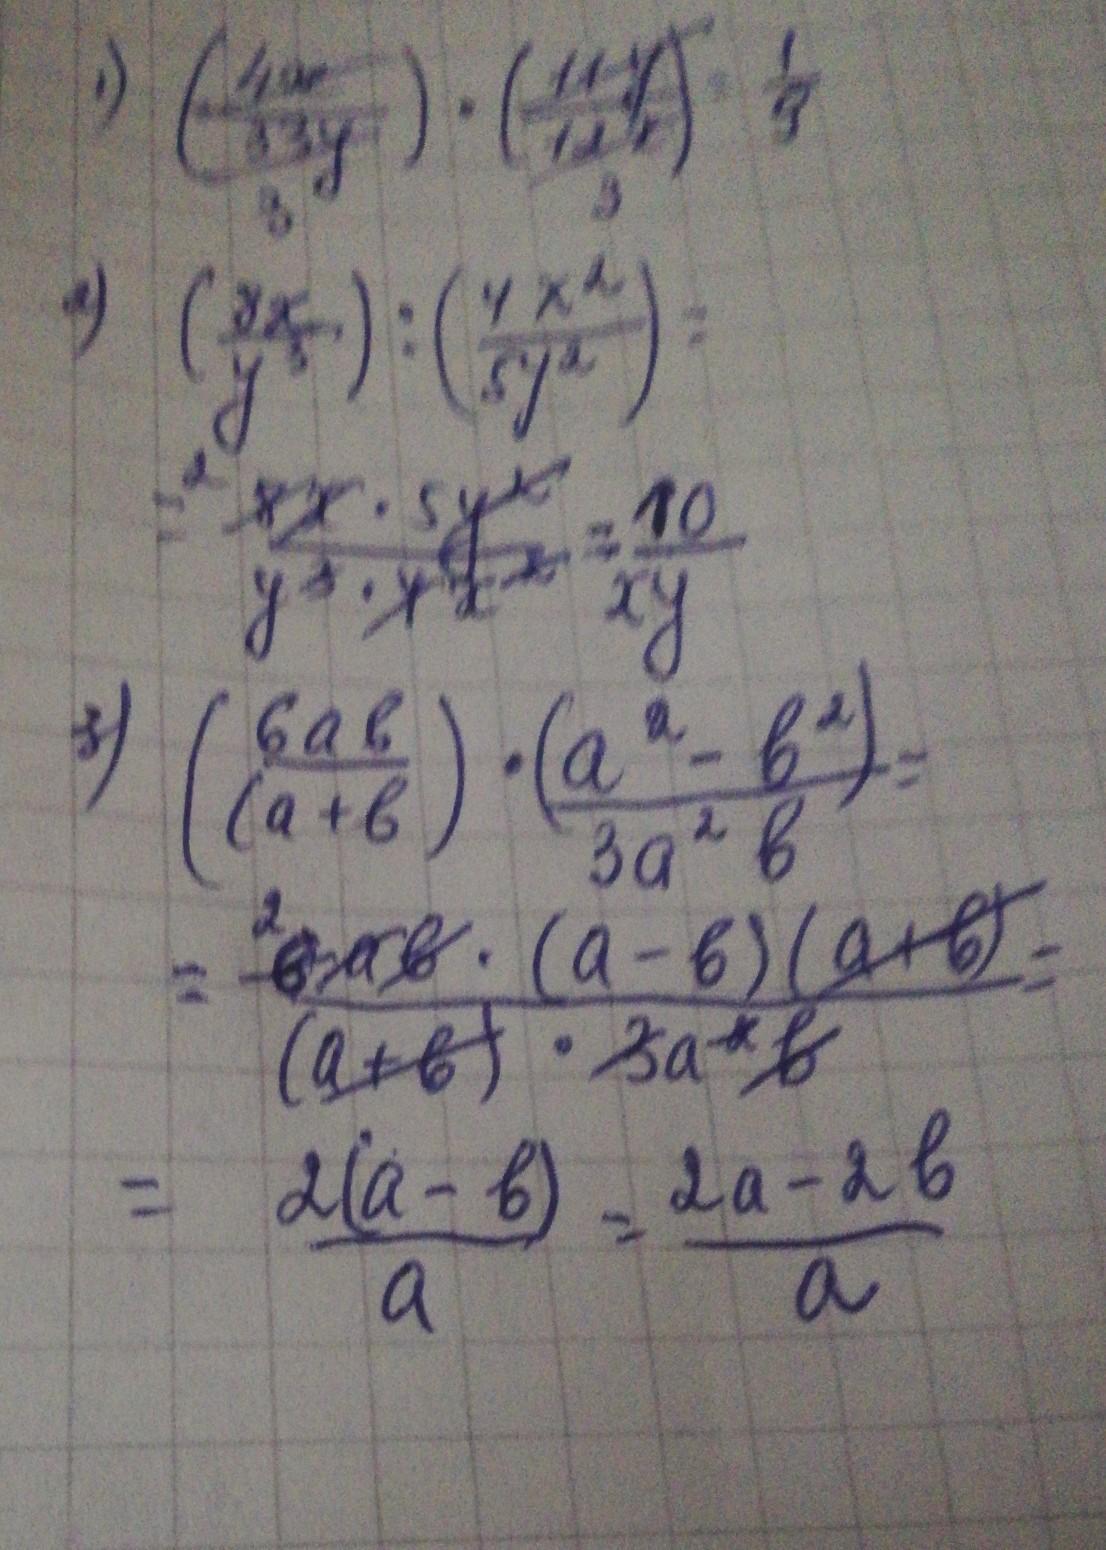 1) (4x/33y) · (11y/12x) = 1/9
3 3
2) (8x/y³) : (4x²/5y²) =
= ² 8x · 5y²/y³ · 4x² = 10/xy
3) (6ab/(a+b) · (a² - b²)/3a²b =
= ² 6ab · (a-b)(a+b)/(a+b) · 3a²b =
= 2(a-b)/a = 2a-2b/a